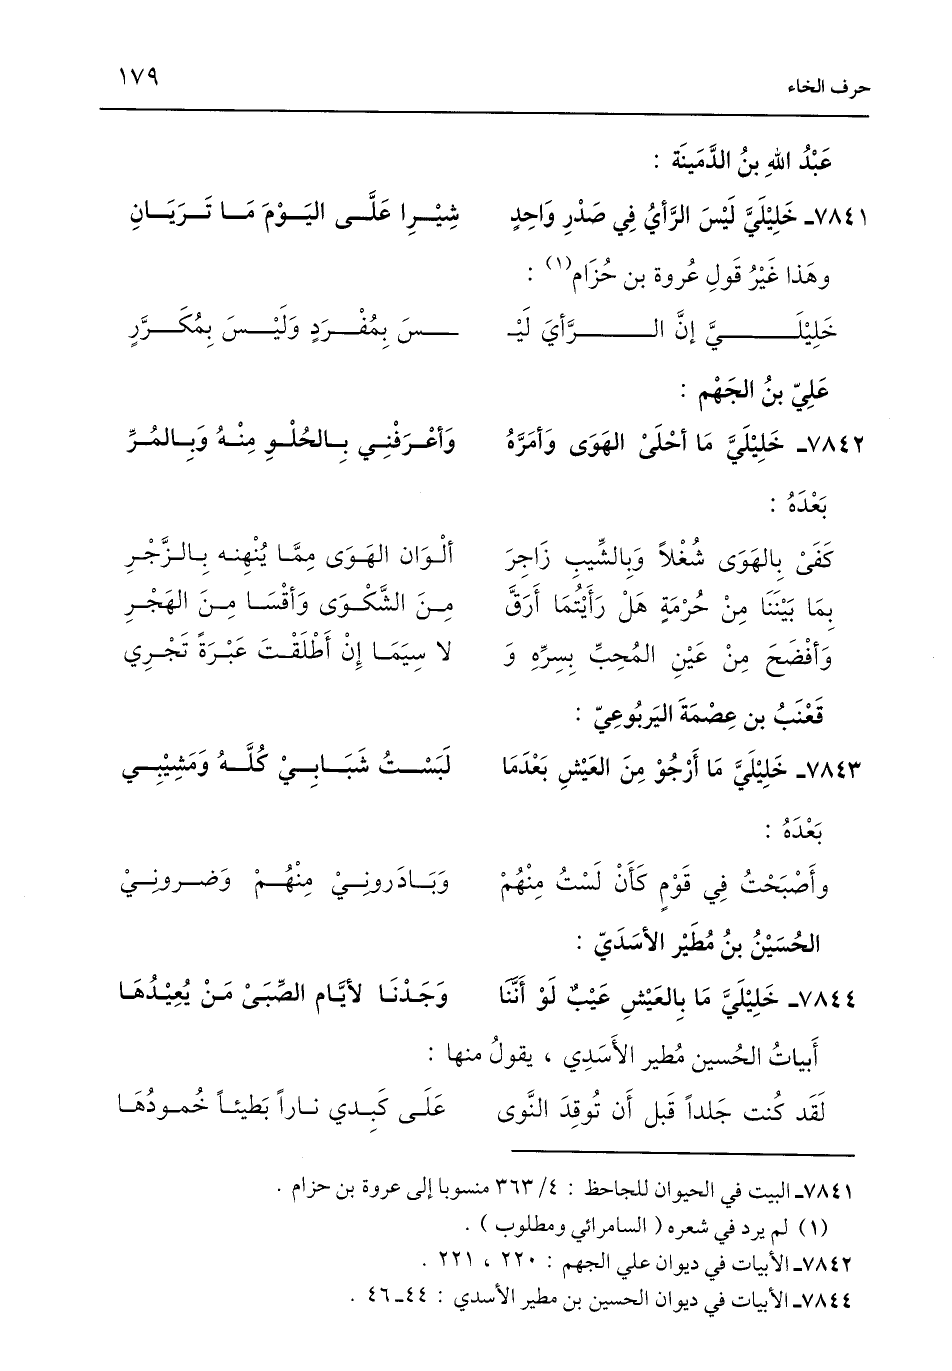 حرف الخاء ١٧٩
عَبْدُ اللهِ بنُ الدَّمَينَة :
٧٨٤١ـ خَلِيْلَيَّ لَيْسَ الرَّأيُ فِي صَدْرِ وَاحِدٍ شِيْرا عَلَّى اليَوْمَ مَا تَرَيَانِ
وهَذا غَيْرُ قَولِ عُروة بن حُزَام(١) :
خَلِيْلَيَّ إنَّ الرَّأيَ لَيْـ ـسَ بِمُفْرَدٍ وَلَيْسَ بِمُكَرَّرٍ
عَلِيّ بنُ الجَهْم :
٧٨٤٢ـ خَلِيْلَيَّ مَا أحْلَىْ الهَوَى وَأمَرَّهُ وَأعْرَفْنِي بِالحُلْوِ مِنْهُ وَبِالمُرِّ
بَعْدَهُ :
كَفَىْ بِالهَوَى شُغْلاً وَبِالشِّيبِ زَاجِرَ ألْوَان الهَوَى مِمَّا يُنْهِنه بِالزَّجْرِ
بِمَا بَيْنَنَا مِنْ حُرْمَةٍ هَلْ رَأيْتُمَا أرَقَّ مِنَ الشَّكْوَى وَأقْسَا مِنَ الهَجْرِ
وَأفْضَحَ مِنْ عَيْنِ المُحِبِّ بِسرِّهِ وَ لا سِيَمَا إنْ أطْلَقْتَ عَبْرَةً تَجْرِي
قَعْنَبُ بن عِصْمَةَ اليَربُوعِيّ :
٧٨٤٣ـ خَلِيْلَيَّ مَا أرْجُوْ مِنَ العَيْشِ بَعْدَمَا لَبَسْتُ شَبَابِيْ كُلَّهُ وَمَشِيْبِي
بَعْدَهُ :
وأصْبَحْتُ فِي قَوْمٍ كَأنْ لَسْتُ مِنْهُمْ وَبَادَرونِيْ مِنْهُمْ وَضرونِيْ
الحُسَيْنُ بنُ مُطَيْر الأسَدَيّ :
٧٨٤٤ـ خَلِيْلَيَّ مَا بِالعَيْشِ عَيْبٌ لَوْ أنَّنَا وَجَدْنَا لأيَّامِ الصِّبَىْ مَنْ يُعِيْدُهَا
أبياتُ الحُسين مُطير الأسَدِي ، يقولُ منها :
لَقَد كُنت جَلداً قَبل أن تُوقِدَ النَّوى عَلَى كَبِدي ناراً بَطيئاً خُمودُهَا
٧٨٤١ـ البيت في الحيوان للجاحظ : ٤/ ٣٦٣ منسوبا إلى عروة بن حزام .
(١) لم يرد في شعره ( السامرائي ومطلوب ) .
٧٨٤٢ـ الأبيات في ديوان علي الجهم : ٢٢٠ ، ٢٢١ .
٧٨٤٤ـ الأبيات في ديوان الحسين بن مطير الأسدي : ٤٤ـ ٤٦ .